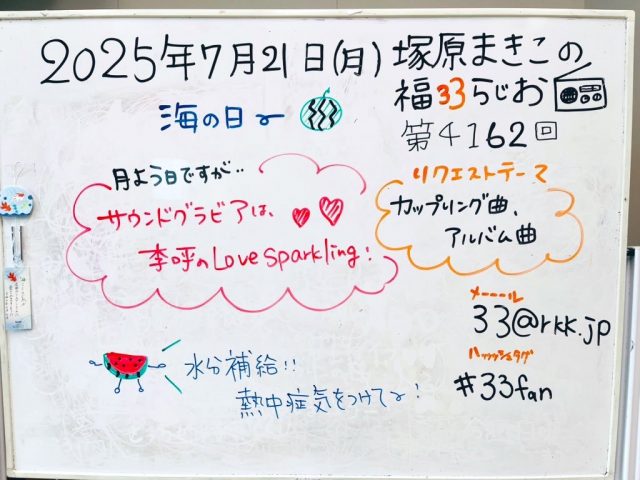 2025年7月21日(月) 塚原まきこの
福33らじお
海の日〜
第4162回
月よう日ですが‥
サウンドグラビアは、
李呼のLove sparkling!
リクエストテーマ
カップリング曲、
アルバム曲
メーーール
33@rkk.jp
ハッッシュタグ
#33fan
水分補給!!
熱中症気をつけて〜!